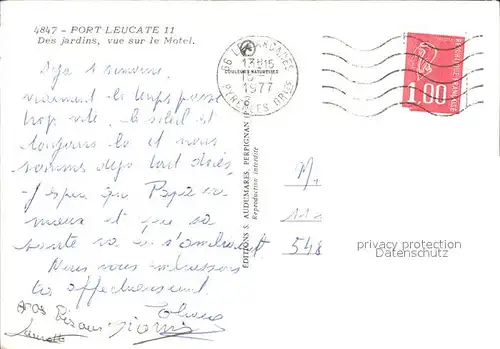 4847 - PORT LEUCATE 11
Des jardins, vue sur le Motel.
Déjà 1 semaine.
vraiment le temps passe
trop vite. le soleil est
toujours là et nous
sommes déjà tout dorés,
J'espère que Papa va
mieux et que sa
santé va s'améliorant
Nous vous embrassons
très affectueusement
gros Bisous
66 LE BARCARES
13H15
1977
PYRENEES ORIES
COULEURS NATURELLES
EDITIONS S. AUDUMARES, PERPIGNAN
Reproduction interdite
REPUBLIQUE FRANCAISE
1,00
M.
111
548
privacy protection
Datenschutz